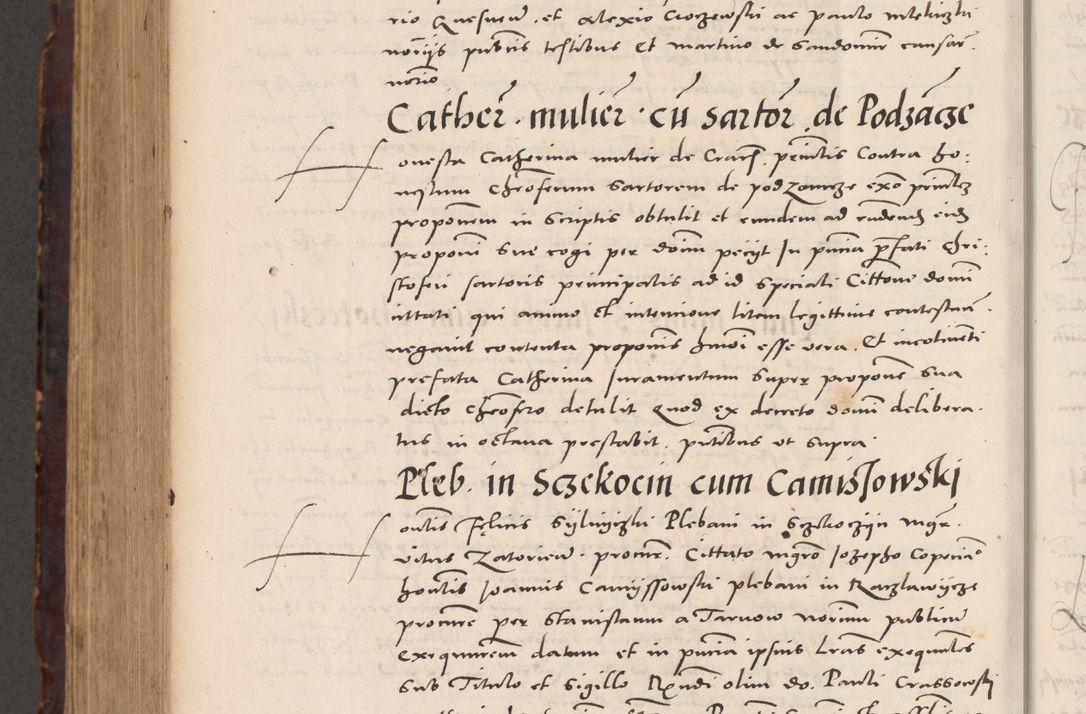 rio Quesneu . et Alexio Croczewski ac paulo
noriis publicis testibus Et martino de Sandomir causar.
norio
Cather. mulier. cu sartor. de Podzacze
Honesta Catherina mulier de Crac. prntis Contra ho:
nestum Chroferum Sartorem de podzamcze exo prntes
proponem in Scriptis obtulit et eundem ad
proponi sue cogi per domi peciit In pntia prefati Chri:
stoferi sartoris principalis ad id speciali Cittone domi
cittati qui animo Et intencione litem legittime contestan.
negavit contenta proponis hmoi esse vera. Et incotinenti
prefata Catherina Juramentum super propone sua
dicto Chrofero detulit Quod ex decreto domi delibera.
tus in octava prestabit. pntibus ut supra.
Pleb. in Sczekocin cum Camissowski
Hontis Felicis Plebani in Sczekoczyn mgr.
vitus Zatorien. procur. Cittato mgro Jozepho
hontis Joannis Camyssowski plebani in Raczlawycze
procure per Stanislaum a Tarnow norium publicu
Exequurem datum et in pntia ipsius Lras exequales
sub Titulo et sigillo Rndi olim do. Pauli Crassowski